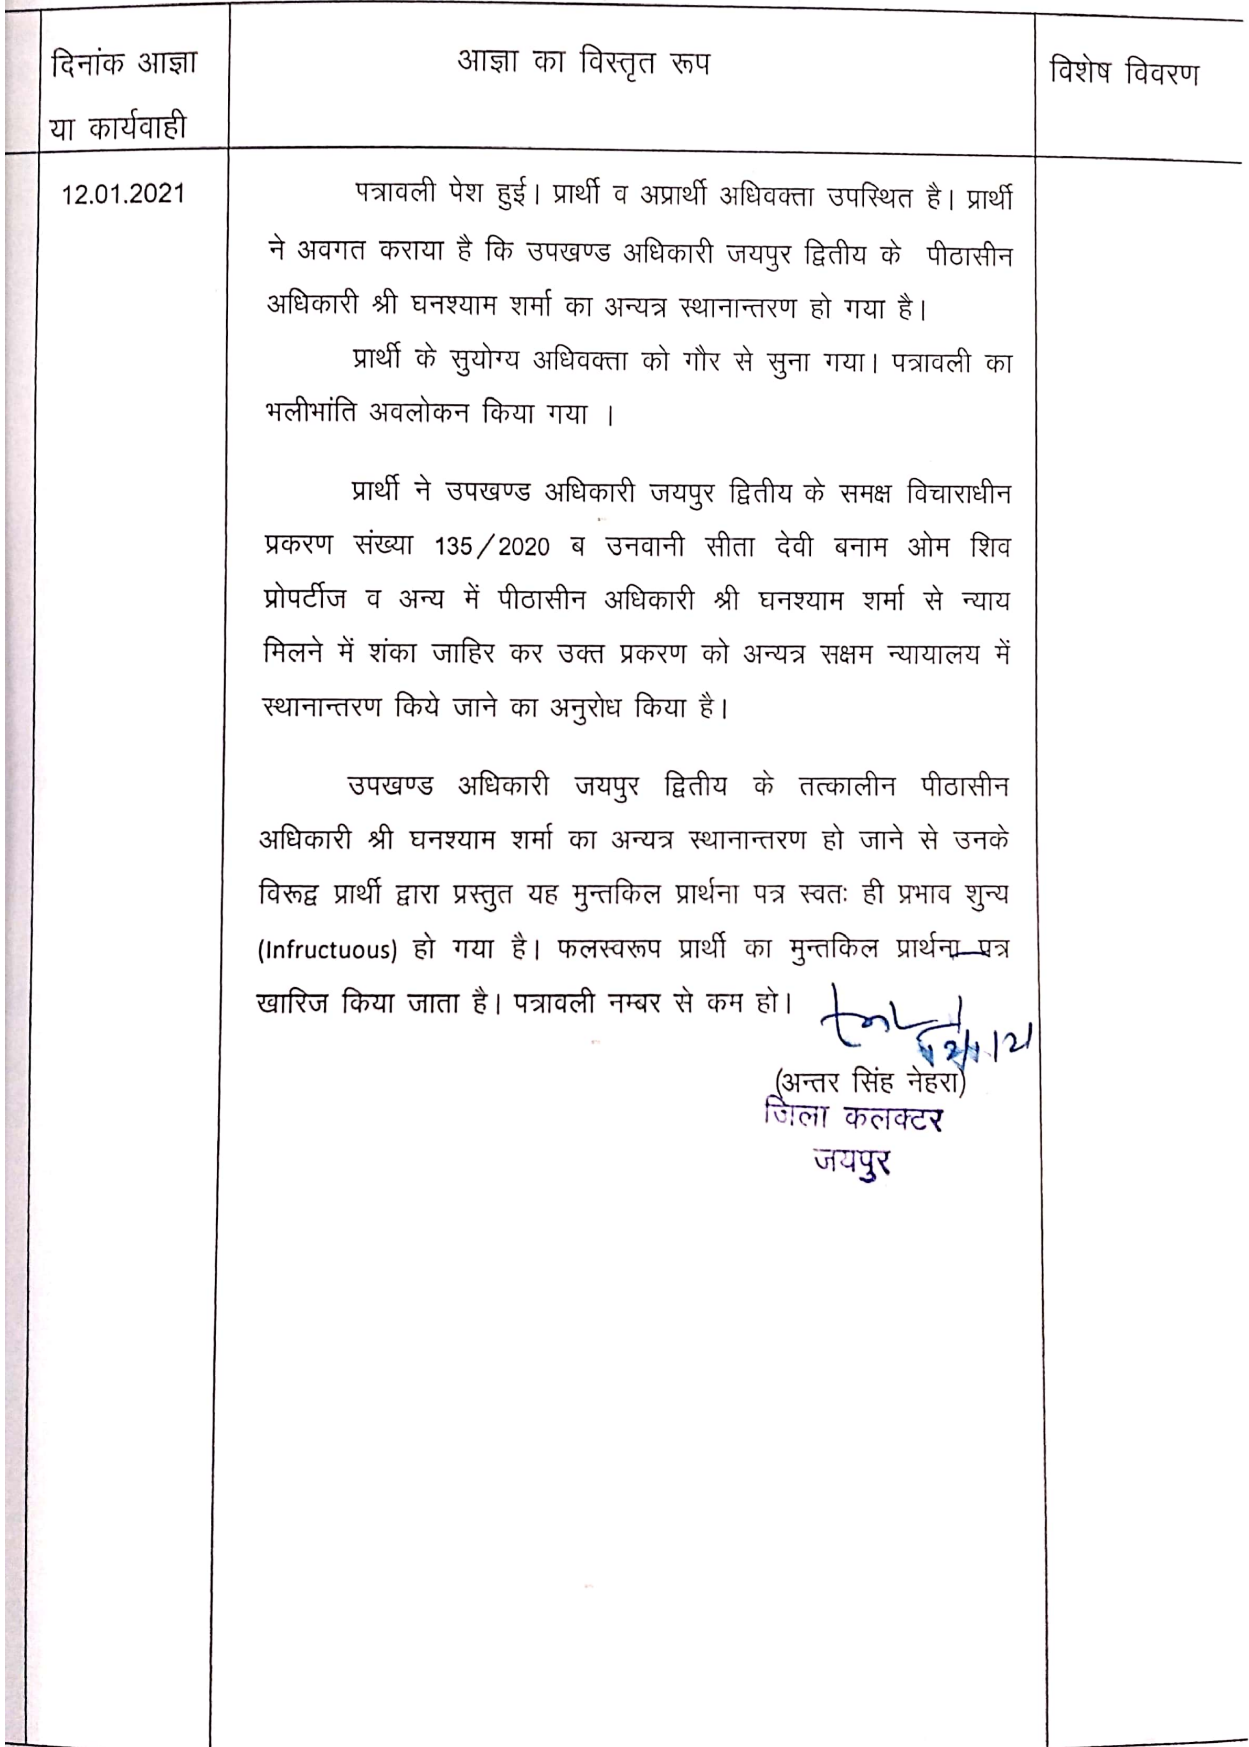 दिनांक आज्ञा
या कार्यवाही
आज्ञा का विस्तृत रूप
विशेष विवरण
12.01.2021
पत्रावली पेश हुई। प्रार्थी व अप्रार्थी अधिवक्ता उपस्थित है। प्रार्थी
ने अवगत कराया है कि उपखण्ड अधिकारी जयपुर द्वितीय के पीठासीन
अधिकारी श्री घनश्याम शर्मा का अन्यत्र स्थानान्तरण हो गया है।
प्रार्थी के सुयोग्य अधिवक्ता को गौर से सुना गया। पत्रावली का
भलीभांति अवलोकन किया गया ।
प्रार्थी ने उपखण्ड अधिकारी जयपुर द्वितीय के समक्ष विचाराधीन
प्रकरण संख्या 135/2020 ब उनवानी सीता देवी बनाम ओम शिव
प्रोपर्टीज व अन्य में पीठासीन अधिकारी श्री घनश्याम शर्मा से न्याय
मिलने में शंका जाहिर कर उक्त प्रकरण को अन्यत्र सक्षम न्यायालय में
स्थानान्तरण किये जाने का अनुरोध किया है।
उपखण्ड अधिकारी जयपुर द्वितीय के तत्कालीन पीठासीन
अधिकारी श्री घनश्याम शर्मा का अन्यत्र स्थानान्तरण हो जाने से उनके
विरूद्व प्रार्थी द्वारा प्रस्तुत यह मुन्तकिल प्रार्थना पत्र स्वतः ही प्रभाव शुन्य
(Infructuous) हो गया है। फलस्वरूप प्रार्थी का मुन्तकिल प्रार्थना पत्र
खारिज किया जाता है। पत्रावली नम्बर से कम हो।
(अन्तर सिंह नेहरा)
जिला कलक्टर
जयपुर